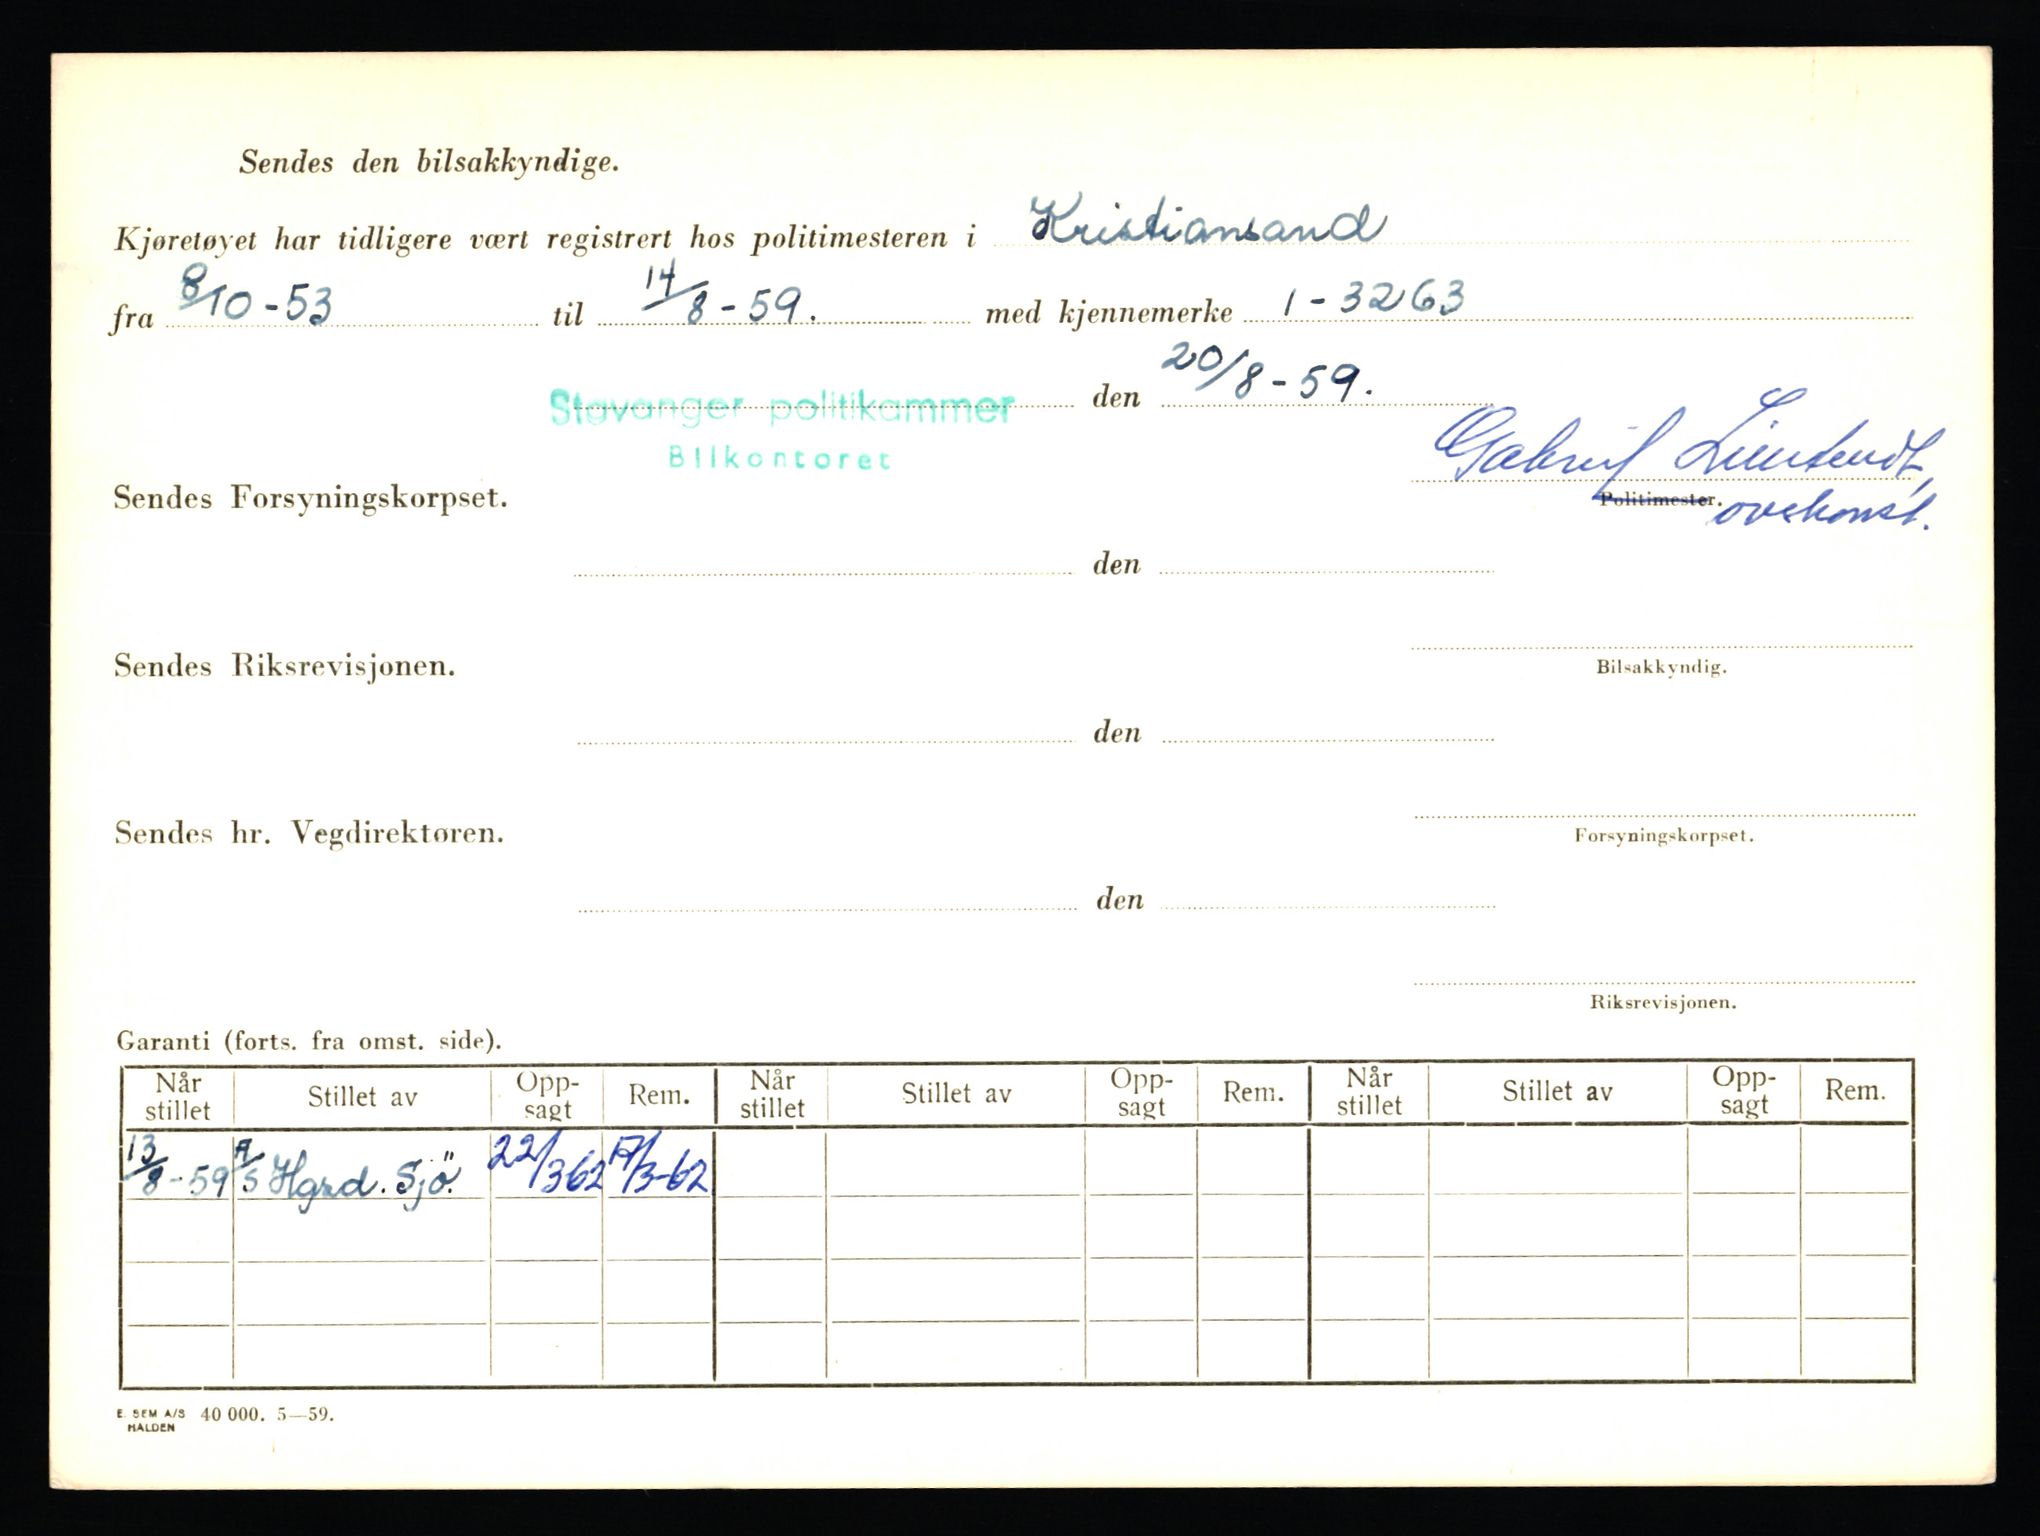 Sendes den bilsakkyndige.
Kjøretøyet har tidligere vært registrert hos politimesteren i Kristiansand
fra 8/10-53 til 14/8-59. med kjennemerke 1-3263
Stavanger politikammer den 20/8-59.
Bilkontoret
Gabriel
Sendes Forsyningskorpset. Politimester. overkonst.
den
Sendes Riksrevisjonen. Bilsakkyndig.
den
Sendes hr. Vegdirektøren. Forsyningskorpset.
den
Riksrevisjonen.
Garanti (forts. fra omst. side).
Når stillet Stillet av Opp-sagt Rem. Når stillet Stillet av Opp-sagt Rem. Når stillet Stillet av Opp-sagt Rem.
13/8-59 A/S Hgrd. Sjö. 22/3 62 17/3-62
E. SEM A/S 40 000. 5—59.
HALDEN